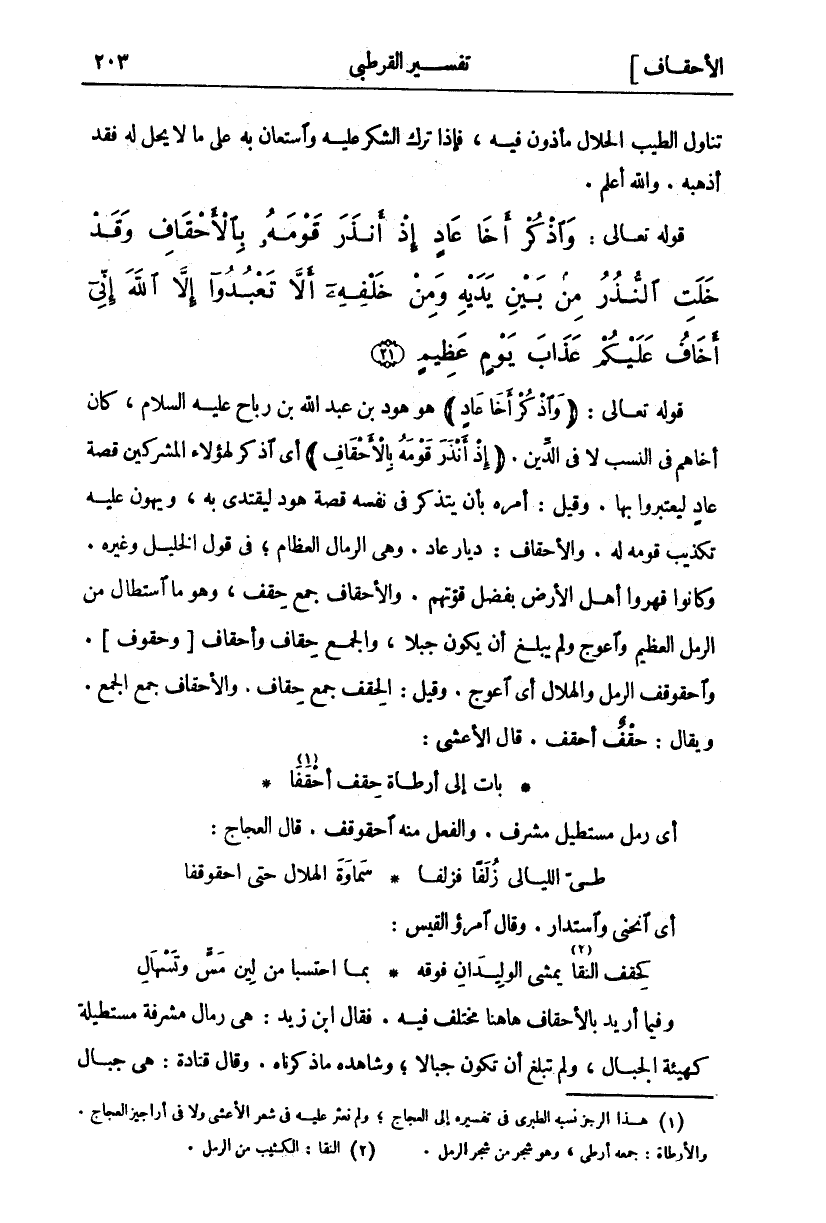 الأحقاف] تفسير القرطبى ٢٠٣
تناول الطيب الحلال مأذون فيه ، فإذا ترك الشكر عليه وٱستعان به على ما لا يحل له فقد
أذهبه . والله أعلم .
قوله تعالى : وَٱذْكُرْ أَخَا عَادٍ إِذْ أَنذَرَ قَوْمَهُۥ بِٱلْأَحْقَافِ وَقَدْ
خَلَتِ ٱلنُّذُرُ مِنۢ بَيْنِ يَدَيْهِ وَمِنْ خَلْفِهِۦٓ أَلَّا تَعْبُدُوٓا إِلَّا ٱللَّهَ إِنِّىٓ
أَخَافُ عَلَيْكُمْ عَذَابَ يَوْمٍ عَظِيمٍ ﴿٢١﴾
قوله تعالى : ﴿ وَٱذْكُرْ أَخَا عَادٍ ﴾ هو هود بن عبد الله بن رباح عليه السلام ، كان
أخاهم فى النسب لا فى الدِّين . ﴿ إِذْ أَنْذَرَ قَوْمَهُ بِالْأَحْقَافِ ﴾ أى ٱذكر لهؤلاء المشركين قصة
عادٍ ليعتبروا بها . وقيل : أمره بأن يتذكر فى نفسه قصة هود ليقتدى به ، ويهون عليه
تكذيب قومه له . والأحقاف : ديار عاد . وهى الرمال العظام ؛ فى قول الخليل وغيره .
وكانوا قهروا أهل الأرض بفضل قوّتهم . والأحقاف جمع حِقف ، وهو ما ٱستطال من
الرمل العظيم وٱعوج ولم يبلغ أن يكون جبلا ، والجمع حِقاف وأحقاف [ وحقوف ] .
وٱحقوقف الرمل والهلال أى ٱعوج . وقيل : الحِقف جمع حِقاف . والأحقاف جمع الجمع .
ويقال : حِقْفٌ أحقف . قال الأعشى :
* بات إلى أرطاة حِقف أحْقَفَا (١) *
أى رمل مستطيل مشرف . والفعل منه ٱحقوقف . قال العجاج :
طىّ الليالى زُلَفًا فزلفا * سَمَاوَةَ الهلال حتى احقوقفا
أى ٱنحنى وٱستدار . وقال ٱمرؤ القيس :
كحِقف النقا (٢) يمشى الوليدَانِ فوقه * بما احتسبا من لِين مَسٍّ وتَسْهَالِ
وفيما أريد بالأحقاف هاهنا مختلف فيه . فقال ابن زيد : هى رمال مشرفة مستطيلة
كهيئة الجبال ، ولم تبلغ أن تكون جبالا ؛ وشاهده ما ذكرناه . وقال قتادة : هى جبال
(١) هذا الرجز نسبه الطبرى فى تفسيره إلى العجاج ؛ ولم نعثر عليه فى شعر الأعشى ولا فى أراجيز العجاج .
والأرطاة : جمعه أرطى ، وهو شجر من شجر الرمل . (٢) النقا : الكثيب من الرمل .